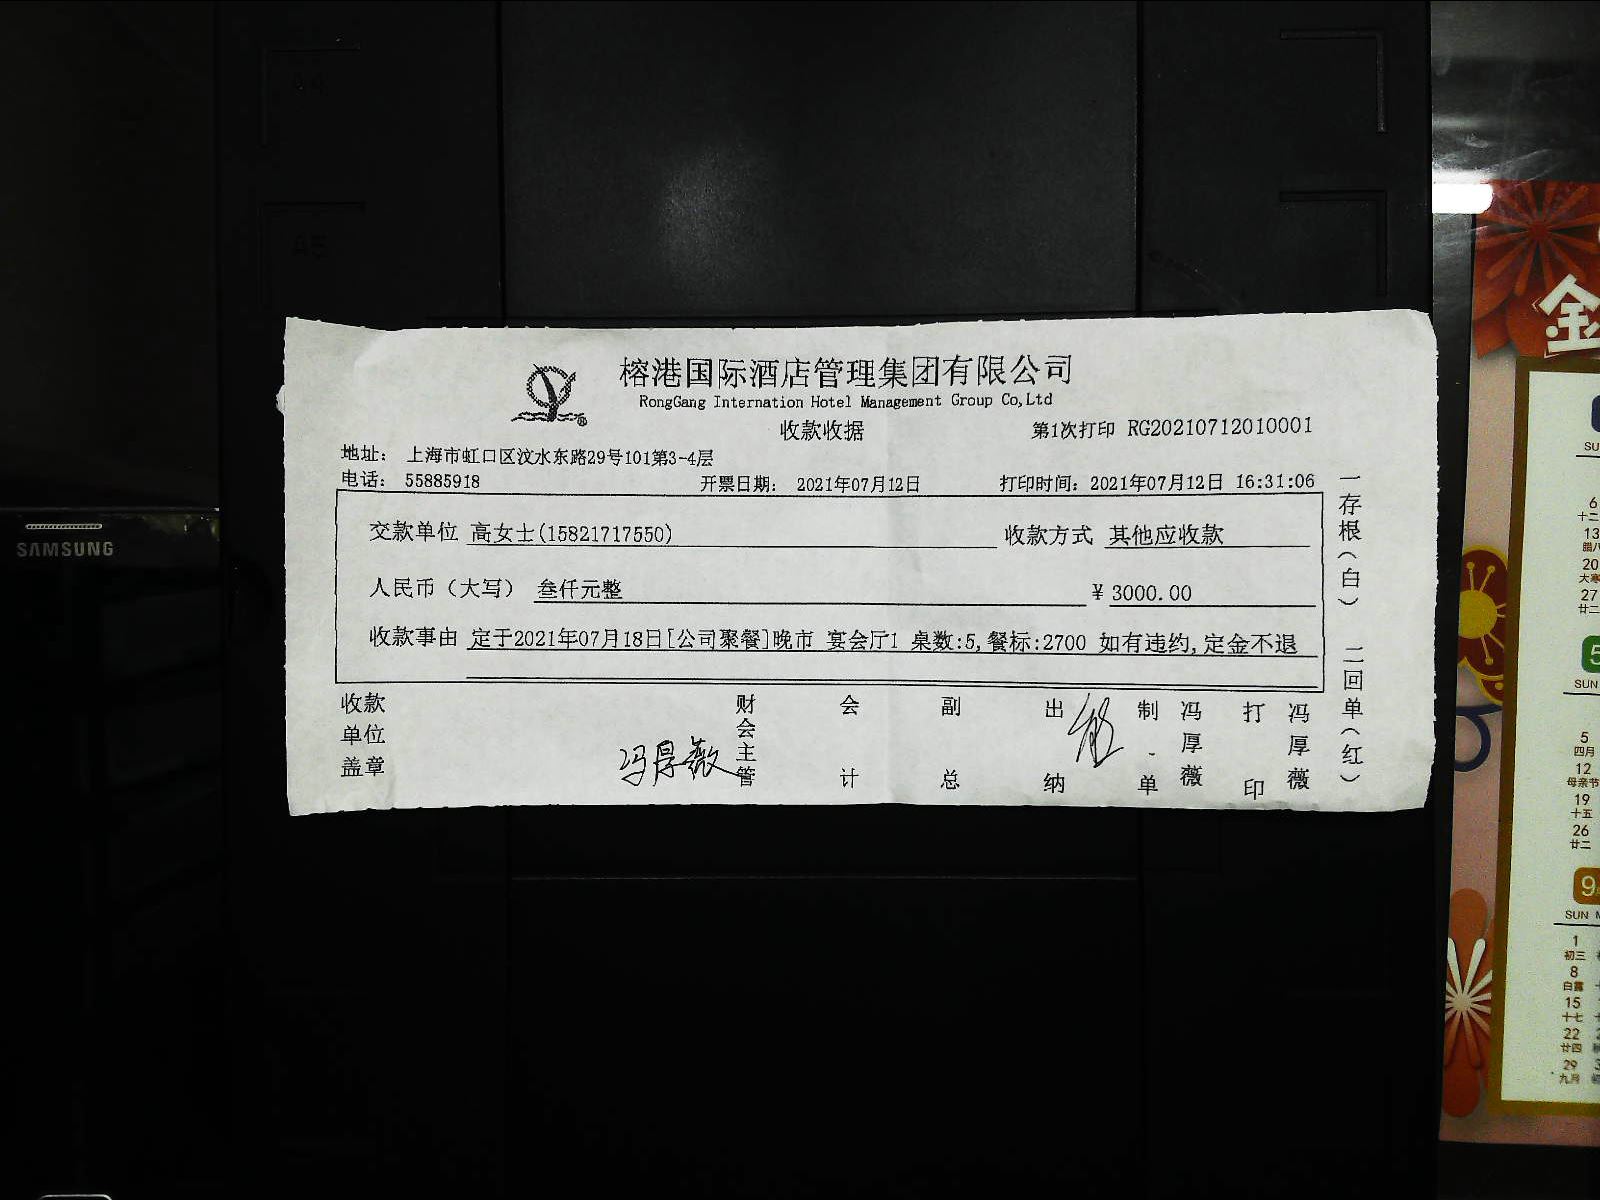 榕港国际酒店管理集团有限公司
RongGang Internation Hotel Management Group Co,Ltd
收款收据
第1次打印 RG20210712010001
地址: 上海市虹口区汶水东路29号101第3-4层
电话: 55885918 开票日期: 2021年07月12日 打印时间: 2021年07月12日 16:31:06
交款单位 高女士(15821717550) 收款方式 其他应收款
人民币（大写） 叁仟元整 ¥ 3000.00
收款事由 定于2021年07月18日[公司聚餐]晚市 宴会厅1 桌数:5,餐标:2700 如有违约,定金不退
收款单位盖章 冯厚薇 财会主管 会计 副总 出纳 制单 冯厚薇 打印 冯厚薇
一存根（白） 二回单（红）
SAMSUNG
A4
A5
金
SU
6
十二
13
腊八
20
大寒
27
廿二
5
SUN
5
四月
12
母亲节
19
十五
26
廿二
9
SUN M
1
初三
8
白露
15
十七
22
廿四
29
九月